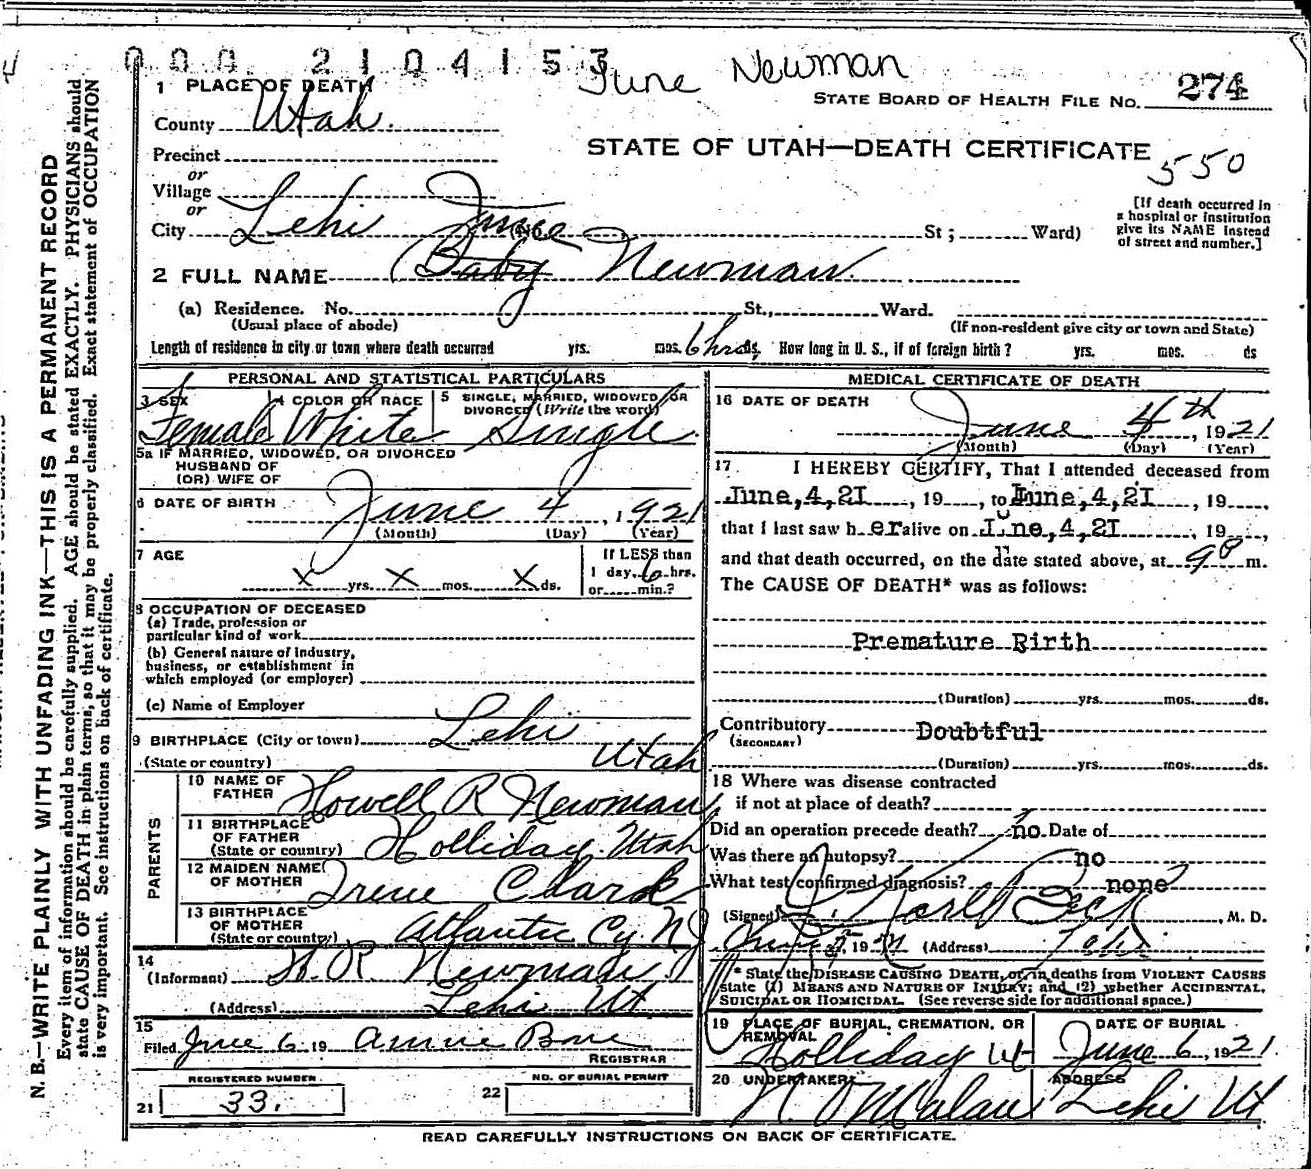 0002104153
June Newman
1 PLACE OF DEATH
STATE BOARD OF HEALTH FILE NO. 274
County Utah.
STATE OF UTAH—DEATH CERTIFICATE
550
Precinct
or
Village
or
City Lehi (No. St; Ward)
[If death occurred in
a hospital or institution
give its NAME instead
of street and number.]
June
2 FULL NAME Baby Newman
(a) Residence. No. St., Ward.
(Usual place of abode) (If non-resident give city or town and State)
Length of residence in city or town where death occurred yrs. mos. 6 hrs ds. How long in U. S., if of foreign birth? yrs. mos. ds
PERSONAL AND STATISTICAL PARTICULARS
3 SEX 4 COLOR OR RACE 5 SINGLE, MARRIED, WIDOWED, OR
DIVORCED (Write the word)
Female White Single
5a IF MARRIED, WIDOWED, OR DIVORCED
HUSBAND OF
(OR) WIFE OF
6 DATE OF BIRTH June 4, 1921
(Month) (Day) (Year)
7 AGE If LESS than
X yrs. X mos. X ds. 1 day, 6 hrs.
or min.?
8 OCCUPATION OF DECEASED
(a) Trade, profession or
particular kind of work
(b) General nature of industry,
business, or establishment in
which employed (or employer)
(c) Name of Employer
9 BIRTHPLACE (City or town) Lehi
(State or country) Utah
PARENTS
10 NAME OF
FATHER Howell R Newman
11 BIRTHPLACE
OF FATHER
(State or country) Holliday Utah
12 MAIDEN NAME
OF MOTHER Irene Clark
13 BIRTHPLACE
OF MOTHER
(State or country) Atlantic Cy. N J
14
(Informant) H. R. Newman
(Address) Lehi Ut
15
Filed June 6 19
REGISTRAR
REGISTERED NUMBER NO. OF BURIAL PERMIT
21 33. 22
MEDICAL CERTIFICATE OF DEATH
16 DATE OF DEATH
June 4th, 1921
(Month) (Day) (Year)
17 I HEREBY CERTIFY, That I attended deceased from
June,4,2I, 19, to June,4,2I, 19,
that I last saw h er alive on June,4,2I, 19,
and that death occurred, on the date stated above, at m.
The CAUSE OF DEATH* was as follows:
Premature Birth
(Duration) yrs. mos. ds.
Contributory Doubtful
(SECONDARY)
(Duration) yrs. mos. ds.
18 Where was disease contracted
if not at place of death?
Did an operation precede death? no Date of
Was there an autopsy? no
What test confirmed diagnosis? none
(Signed) Karl Beck, M. D.
19 21 (Address) Lehi
* State the DISEASE CAUSING DEATH, or, in deaths from VIOLENT CAUSES
state (1) MEANS AND NATURE OF INJURY; and (2) whether ACCIDENTAL,
SUICIDAL OR HOMICIDAL. (See reverse side for additional space.)
19 PLACE OF BURIAL, CREMATION, OR
REMOVAL DATE OF BURIAL
Holliday Ut June 6, 1921
20 UNDERTAKER ADDRESS
Lehi Ut
READ CAREFULLY INSTRUCTIONS ON BACK OF CERTIFICATE.
N. B.—WRITE PLAINLY WITH UNFADING INK—THIS IS A PERMANENT RECORD
Every item of information should be carefully supplied. AGE should be stated EXACTLY. PHYSICIANS should
state CAUSE OF DEATH in plain terms, so that it may be properly classified. Exact statement of OCCUPATION
is very important. See instructions on back of certificate.